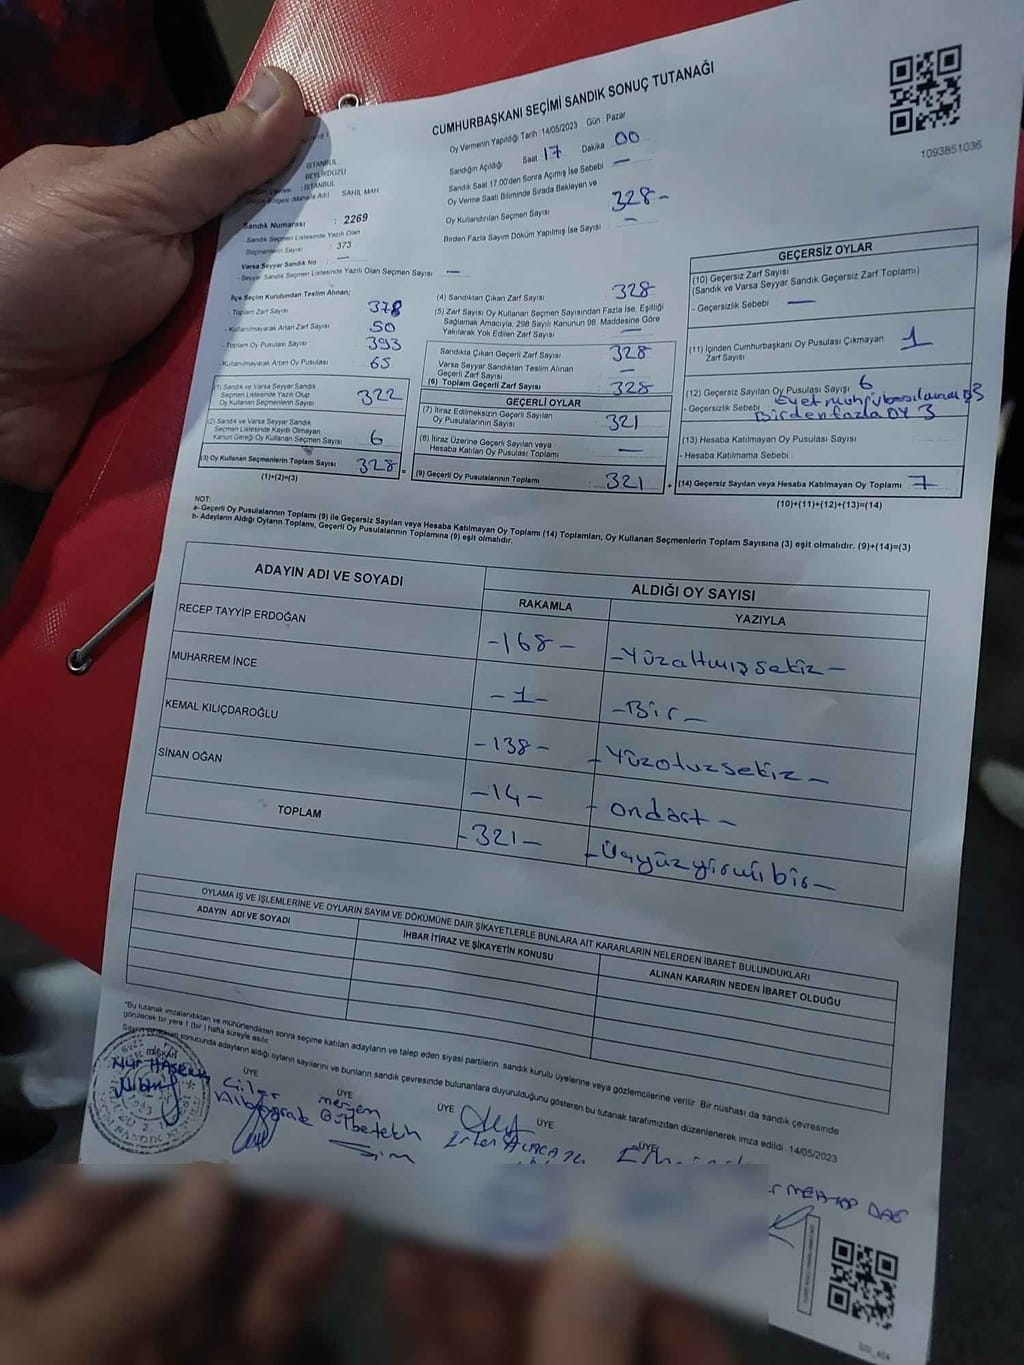 CUMHURBAŞKANI SEÇİMİ SANDIK SONUÇ TUTANAĞI
1093851036
İSTANBUL
BEYLİKDÜZÜ
: İSTANBUL
(Mahalle Adı) SAHİL MAH
Sandık Numarası : 2269
- Sandık Seçmen Listesinde Yazılı Olan
Seçmenlerin Sayısı : 373
Varsa Seyyar Sandık No —
- Seyyar Sandık Seçmen Listesinde Yazılı Olan Seçmen Sayısı : —
Oy Vermenin Yapıldığı Tarih 14/05/2023 Gün Pazar
Sandığın Açıldığı Saat 17 Dakika 00
Sandık Saat 17.00'den Sonra Açımış İse Sebebi —
Oy Verme Saati Bitiminde Sırada Bekleyen ve
Oy Kullandırılan Seçmen Sayısı 328-
Birden Fazla Sayım Döküm Yapılmış İse Sayısı —
İlçe Seçim Kurulundan Teslim Alınan;
- Toplam Zarf Sayısı 378
- Kullanılmayarak Artan Zarf Sayısı 50
- Toplam Oy Pusulası Sayısı 393
- Kullanılmayarak Artan Oy Pusulası 65
(1) Sandık ve Varsa Seyyar Sandık
Seçmen Listesinde Yazılı Olup
Oy Kullanan Seçmenlerin Sayısı 322
(2) Sandık ve Varsa Seyyar Sandık
Seçmen Listesinde Kayıtlı Olmayan
Kanun Gereği Oy Kullanan Seçmen Sayısı 6
(3) Oy Kullanan Seçmenlerin Toplam Sayısı 328 =
(1)+(2)=(3)
(4) Sandıktan Çıkan Zarf Sayısı 328
(5) Zarf Sayısı Oy Kullanan Seçmen Sayısından Fazla İse, Eşitliği
Sağlamak Amacıyla, 298 Sayılı Kanunun 98. Maddesine Göre
Yakılarak Yok Edilen Zarf Sayısı —
Sandıkta Çıkan Geçerli Zarf Sayısı 328
Varsa Seyyar Sandıktan Teslim Alınan
Geçerli Zarf Sayısı —
(6) Toplam Geçerli Zarf Sayısı 328
GEÇERLİ OYLAR
(7) İtiraz Edilmeksizin Geçerli Sayılan
Oy Pusulalarının Sayısı 321
(8) İtiraz Üzerine Geçerli Sayılan veya
Hesaba Katılan Oy Pusulası Toplamı —
(9) Geçerli Oy Pusulalarının Toplamı : 321 +
GEÇERSİZ OYLAR
(10) Geçersiz Zarf Sayısı
(Sandık ve Varsa Seyyar Sandık Geçersiz Zarf Toplamı)
- Geçersizlik Sebebi —
(11) İçinden Cumhurbaşkanı Oy Pusulası Çıkmayan
Zarf Sayısı 1
(12) Geçersiz Sayılan Oy Pusulası Sayısı 6
- Geçersizlik Sebebi
Birden fazla OY 3
(13) Hesaba Katılmayan Oy Pusulası Sayısı
- Hesaba Katılmama Sebebi
(14) Geçersiz Sayılan veya Hesaba Katılmayan Oy Toplamı 7
(10)+(11)+(12)+(13)=(14)
NOT:
a- Geçerli Oy Pusulalarının Toplamı (9) ile Geçersiz Sayılan veya Hesaba Katılmayan Oy Toplamı (14) Toplamları, Oy Kullanan Seçmenlerin Toplam Sayısına (3) eşit olmalıdır. (9)+(14)=(3)
b- Adayların Aldığı Oyların Toplamı, Geçerli Oy Pusulalarının Toplamına (9) eşit olmalıdır.
ADAYIN ADI VE SOYADI ALDIĞI OY SAYISI
RAKAMLA YAZIYLA
RECEP TAYYİP ERDOĞAN -168- -Yüzaltmışsekiz-
MUHARREM İNCE -1- -Bir-
KEMAL KILIÇDAROĞLU -138- -Yüzotuzsekiz-
SİNAN OĞAN -14- -ondört-
TOPLAM -321- -Üçyüzyirmibir-
OYLAMA İŞ VE İŞLEMLERİNE VE OYLARIN SAYIM VE DÖKÜMÜNE DAİR ŞİKAYETLERLE BUNLARA AİT KARARLARIN NELERDEN İBARET BULUNDUKLARI
ADAYIN ADI VE SOYADI İHBAR İTİRAZ VE ŞİKAYETİN KONUSU ALINAN KARARIN NEDEN İBARET OLDUĞU
"Bu tutanak imzalandıktan ve mühürlendikten sonra seçime katılan adayların ve talep eden siyasi partilerin sandık kurulu üyelerine veya gözlemcilerine verilir. Bir nüshası da sandık çevresinde
görülecek bir yere 1 (bir) hafta süreyle asılır.
Sayım ve döküm sonucunda adayların aldığı oyların sayılarını ve bunların sandık çevresinde bulunanlara duyurulduğunu gösteren bu tutanak tarafımızdan düzenlenerek imza edildi 14/05/2023
BAŞKAN ÜYE ÜYE ÜYE ÜYE ÜYE
MEHTAP